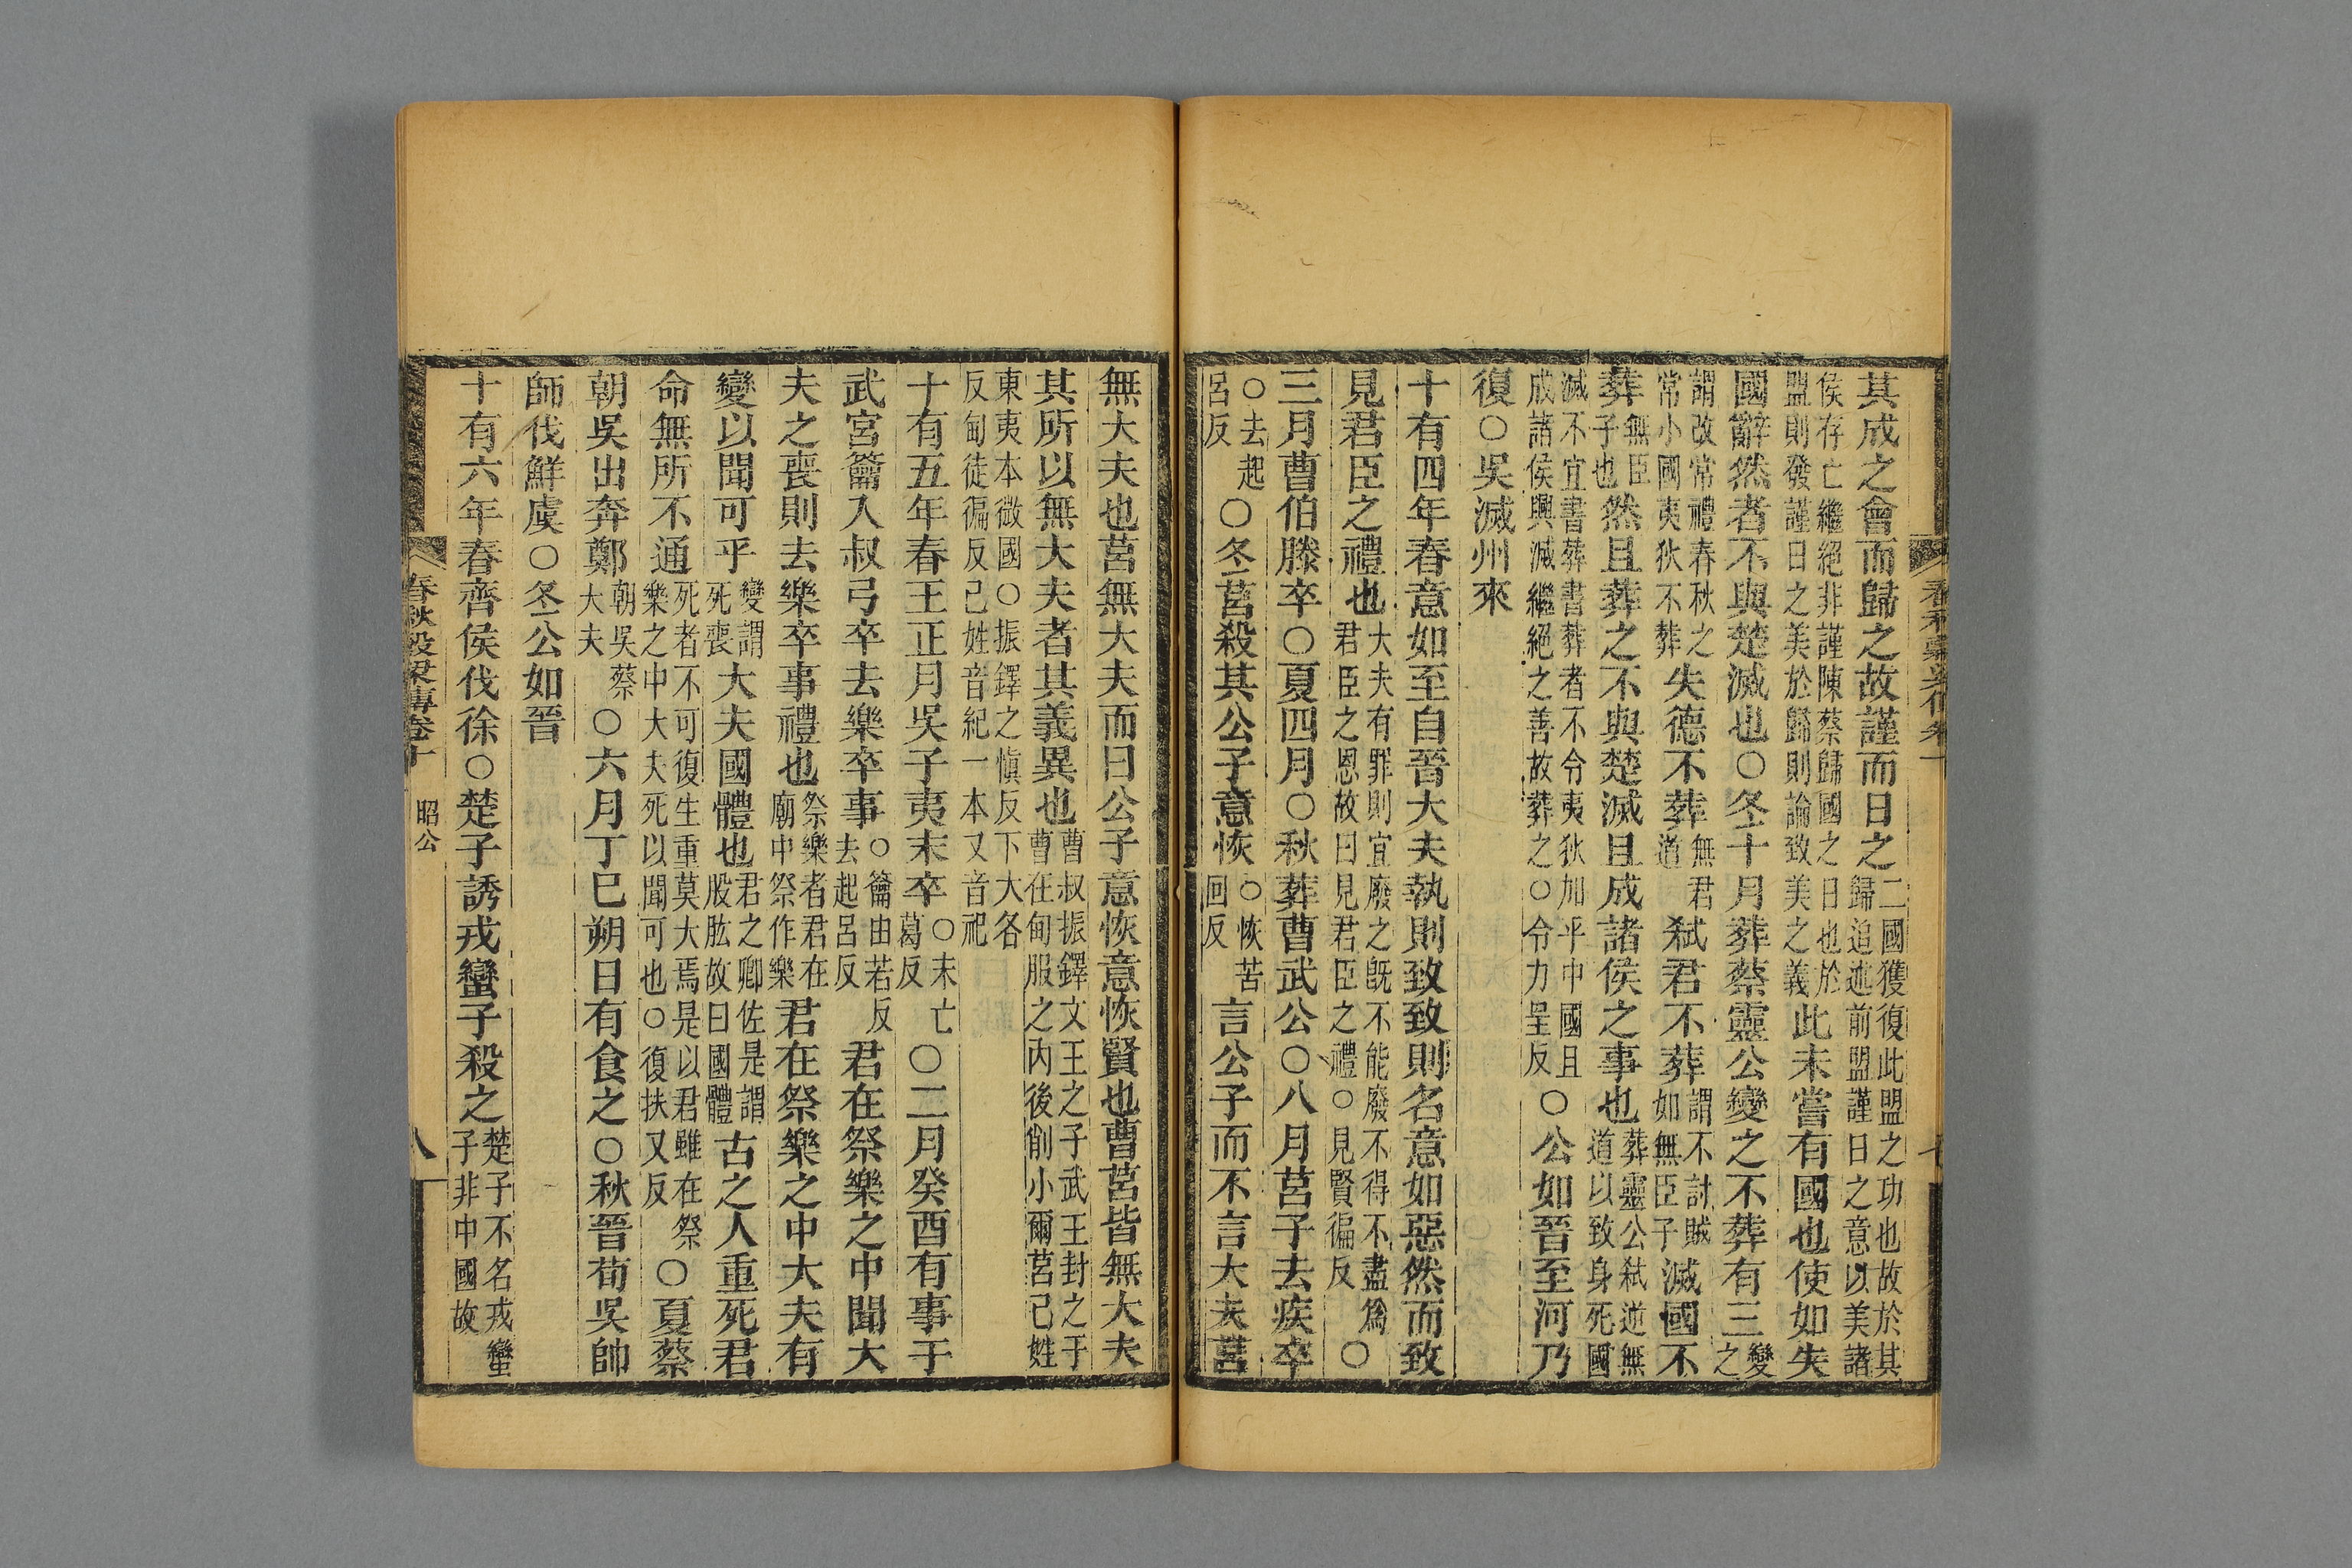 其成之會而歸之故謹而日之二國獲復此盟之功也故於其歸追述前盟謹日之意以美諸
侯存亡繼絕非謹陳蔡歸國之日也於盟則發謹日之美於歸則論致美之義此未嘗有國也使如失
國辭然者不與楚滅也○冬十月葬蔡靈公變之不葬有三變之
謂改常禮春秋之常小國夷狄不葬失德不葬無君道弑君不葬謂不討賊如無臣子滅國不
葬無臣子也然且葬之不與楚滅且成諸侯之事也葬靈公弑逆無道以致身死國
滅不宜書葬書葬者不令夷狄加乎中國且成諸侯興滅繼絕之善故葬之○令力呈反○公如晉至河乃
復○吳滅州來
十有四年春意如至自晉大夫執則致致則名意如惡然而致
見君臣之禮也大夫有罪則宜廢之旣不能廢不得不盡爲君臣之恩故曰見君臣之禮○見賢徧反○
三月曹伯滕卒○夏四月○秋葬曹武公○八月莒子去疾卒
○去起呂反○冬莒殺其公子意恢○恢苦回反言公子而不言大夫莒
無大夫也莒無大夫而曰公子意恢意恢賢也曹莒皆無大夫
其所以無大夫者其義異也曹叔振鐸文王之子武王封之于曹在甸服之內後削小爾莒己姓
東夷本微國○振鐸之愼反下大各反甸徒徧反己姓音紀一本又音祀
十有五年春王正月吳子夷末卒○末亡葛反○二月癸酉有事于
武宮籥入叔弓卒去樂卒事○籥由若反去起呂反君在祭樂之中聞大
夫之喪則去樂卒事禮也祭樂者君在廟中祭作樂君在祭樂之中大夫有
變以聞可乎變謂死喪大夫國體也君之卿佐是謂股肱故曰國體古之人重死君
命無所不通死者不可復生重莫大焉是以君雖在祭樂之中大夫死以聞可也○復扶又反○夏蔡
朝吳出奔鄭朝吳蔡大夫○六月丁巳朔日有食之○秋晉荀吳帥
師伐鮮虞○冬公如晉
十有六年春齊侯伐徐○楚子誘戎蠻子殺之楚子不名戎蠻子非中國故
春秋穀梁傳卷十 昭公 八